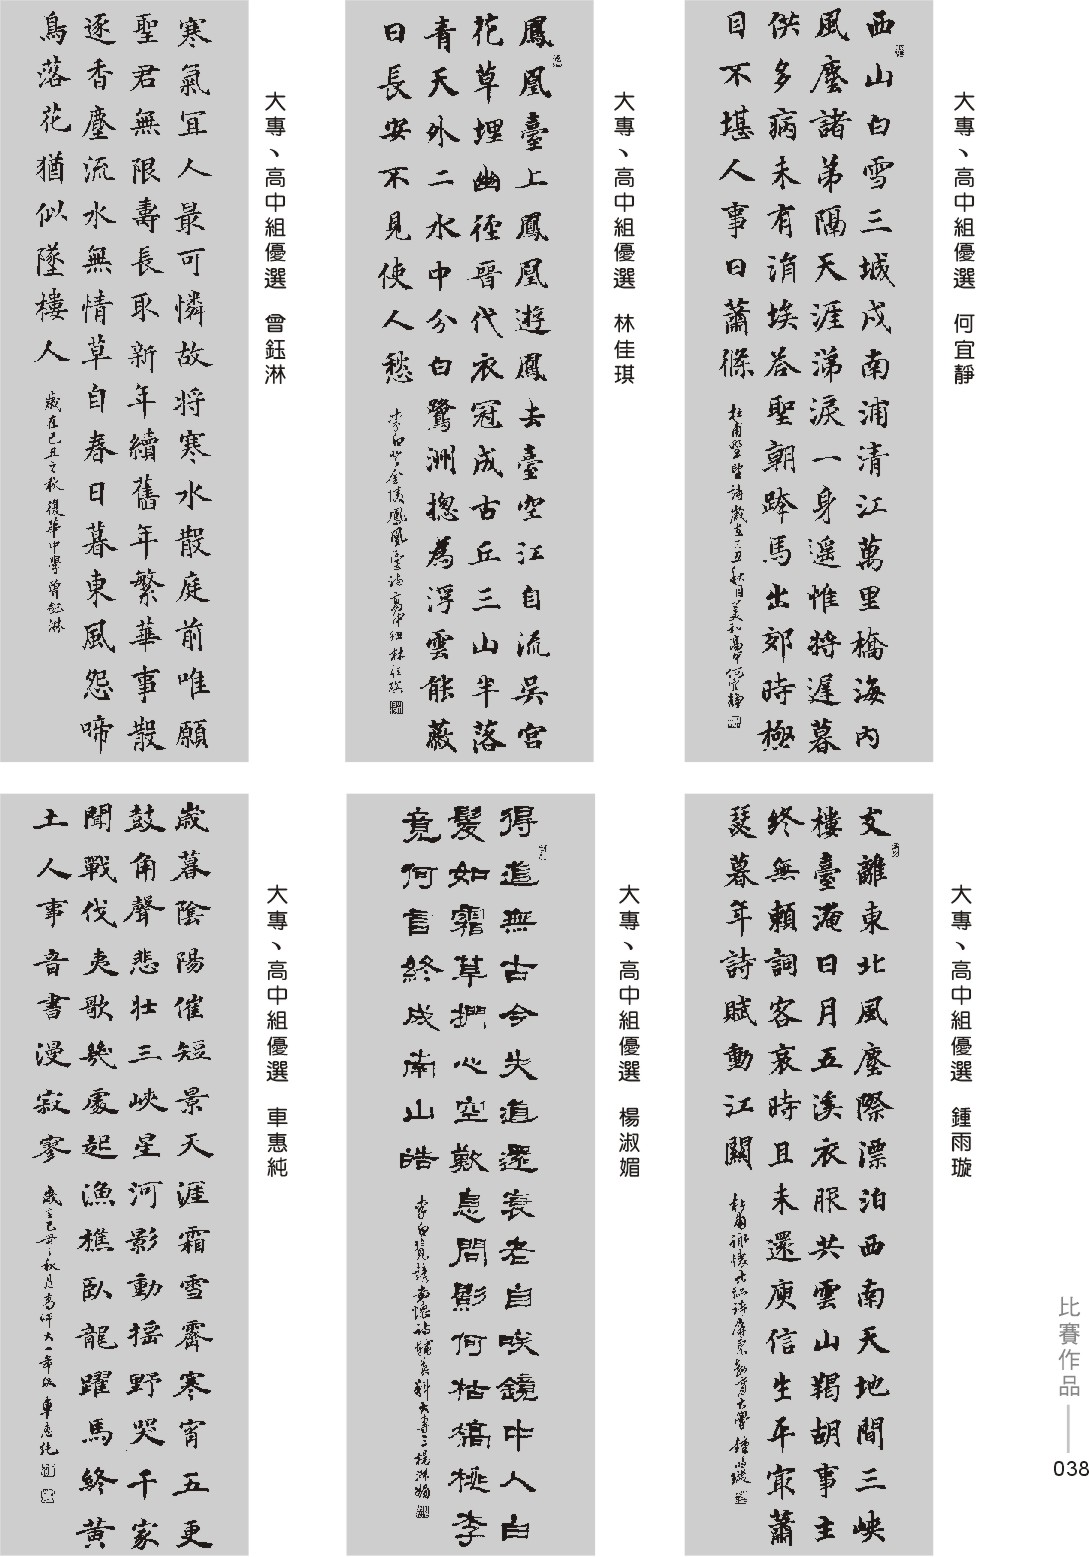 西山白雪三城戍南浦清江萬里橋海內
風塵諸弟隔天涯涕淚一身遥惟將遲暮
供多病未有涓埃答聖朝跨馬出郊時極
目不堪人事日蕭條
大專、高中組優選 何宜靜
鳳凰臺上鳳凰遊鳳去臺空江自流吳宮
花草埋幽徑晉代衣冠成古丘三山半落
青天外二水中分白鷺洲揔為浮雲能蔽
日長安不見使人愁
李白登金陵鳳凰臺詩高中組林佳琪
大專、高中組優選 林佳琪
寒氣宜人最可憐故將寒水散庭前唯願
聖君無限壽長取新年續舊年繁華事散
逐香塵流水無情草自春日暮東風怨啼
鳥落花猶似墜樓人
歲在己丑之秋復華中學曾鈺淋
大專、高中組優選 曾鈺淋
支離東北風塵際漂泊西南天地間三峽
樓臺淹日月五溪衣服共雲山羯胡事主
終無賴詞客哀時且未還庾信生平最蕭
瑟暮年詩賦動江關
大專、高中組優選 鍾雨璇
得道無古今失道還衰老自咲鏡中人白
髮如霜草捫心空歎息問影何枯槁桃李
竟何言終成南山皓
大專、高中組優選 楊淑媚
歲暮陰陽催短景天涯霜雪霽寒宵五更
鼓角聲悲壯三峽星河影動搖野哭千家
聞戰伐夷歌幾處起漁樵臥龍躍馬終黃
土人事音書漫寂寥
大專、高中組優選 車惠純
比賽作品
038